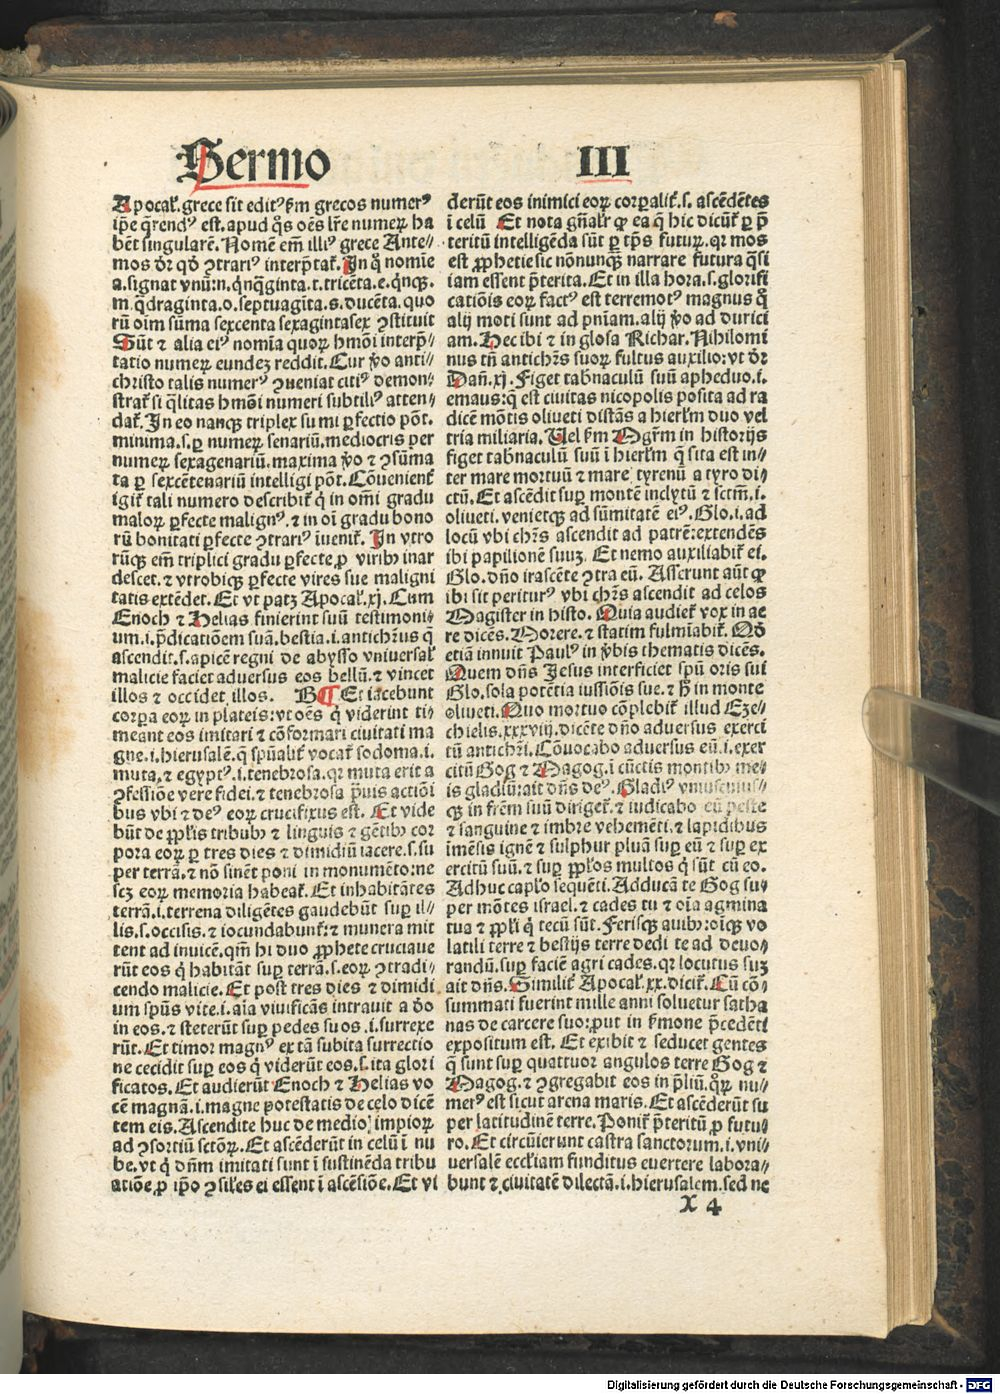 Sermo III
Apocal̃. grece sit editꝰ ẜm grecos numerꝰ
ip̃e q̃rendꝰ est. apud q̊s oẽs lr̃e numeꝝ ha
bẽt singularẽ. Nomẽ em̃ illiꝰ grece Ante⸗
mos dr̃ qd̛ ↄtrariꝰ interp̃tat̃. In q̊ nomĩe
a. signat vnũ: n. q̃nq̃ginta. t. tricẽta. e. q̃nq̃.
m. q̃draginta. o. septuagĩta. s. ducẽta. quo
rũ oĩm sũma sexcenta sexagintasex ↄstituit
Sũt ⁊ alia eiꝰ nomĩa quoꝝ hmõi interp̃⸗
tatio numeꝝ eundeꝫ reddit. Cur v̛o anti⸗
christo talis numerꝰ ↄueniat citiꝰ demon⸗
strat̃ si q̃litas hmõi numeri subtiliꝰ atten⸗
dat̃. In eo nanqꝫ triplex sumi ꝑfectio põt.
minima. s. ꝑ numeꝝ senariũ. mediocris per
numeꝝ sexagenariũ. maxima v̛o ⁊ ↄsũma
ta ꝑ sexcẽtenariũ intelligi põt. Cõuenient̃
igit̃ tali numero describit̃ q̇ in om̃i gradu
maloꝝ ꝑfecte malignꝰ. ⁊ in oĩ gradu bono
rũ bonitati ꝑfecte ↄtrariꝰ iuenit̃. In vtro
rũqꝫ em̃ triplici gradu ꝑfecte ꝓ viribꝫ inar
descet. ⁊ vtrobiqꝫ ꝑfecte vires sue maligni
tatis extẽdet. Et vt patꝫ Apocal̃. xj. Cum
Enoch ⁊ Helias finierint suũ testimoni⸗
um. i. p̃dicatiõem suã. bestia. i. antichr̃us q̃
ascendit. s. apicẽ regni de abysso vniuersal̃
malicie faciet aduersus eos bellũ. ⁊ vincet
illos ⁊ occidet illos. B Et iacebunt
corꝑa eoꝝ in plateis: vt oẽs q̇ viderint ti⸗
meant eos imitari ⁊ cõformari ciuitati ma
gne. i. hierusalẽ. q̃ sp̃ualit̃ vocat̃ sodoma. i.
muta. ⁊ egyptꝰ. i. tenebrosa. qꝛ muta erit a
ↄfessiõe vere fidei. ⁊ tenebrosa p̃uis actiõi
bus vbi ⁊ deꝰ eoꝝ crucifixus est. Et vide
bũt de pp̃lis tribubꝫ ⁊ linguis ⁊ gẽtibꝫ cor
pora eoꝝ ꝑ tres dies ⁊ dimidiũ iacere. s. su
per terrã. ⁊ nõ sinẽt poni in monumẽto: ne
scꝫ eoꝝ memoria habeat̃. Et inhabitãtes
terrã. i. terrena diligẽtes gaudebũt suꝑ il⸗
lis. s. occisis. ⁊ iocundabunt̃: ⁊ munera mit
tent ad inuicẽ. qm̃ hi duo ꝓphete cruciaue
rũt eos q̇ habitãt suꝑ terrã. s. eoꝝ ↄtradi⸗
cendo malicie. Et post tres dies ⁊ dimidi
um sp̃us vite. i. aĩa viuificãs intrauit a d̛o
in eos. ⁊ steterũt suꝑ pedes suos. i. surrexe
rũt. Et timor magnꝰ ex tã subita surrectio
ne cecidit suꝑ eos q̇ viderũt eos. s. ita glori
ficatos. Et audierũt Enoch ⁊ Helias vo
cẽ magnã. i. magne potestatis de celo dicẽ
tem eis. Ascendite huc de medio impioꝝ
ad ↄsortiũ sctõꝝ. Et ascẽderũt in celũ ĩ nu
be. vt q̇ dñm imitati sunt ĩ sustinẽda tribu
atiõe ꝓ ip̃o ↄsiles ei essent ĩ ascẽsiõe. Et vi
derũt eos inimici eoꝝ corꝑalit̃. s. ascẽdẽtes
ĩ celũ Et nota gñalr̃ ꝙ ea q̃ hic dicũt̃ ꝑ p̃
teritũ intelligẽda sũt ꝑ tp̃s futuꝝ. qꝛ mos
est ꝓphetie sic nõnunqꝫ narrare futura q̃si
iam essent p̃terita. Et in illa hora. s. glorifi
catiõis eoꝝ factꝰ est terremotꝰ magnus q̊
alij moti sunt ad pniam. alij v̛o ad durici
am. Hec ibi ⁊ in glosa Richar. Nihilomi
nus tñ antichr̃s suoꝝ fultus auxilio: vt dr̃
Dañ. xj. Figet tabnaculũ suũ apheduo. i.
emaus: q̃ est ciuitas nicopolis posita ad ra
dicẽ mõtis oliueti distãs a hierl̃m duo vel
tria miliaria. Uel ẜm Mgr̃m in historijs
figet tabnaculũ suũ ĩ hierl̃m q̃ sita est in⸗
ter mare mortuũ ⁊ mare tyrenũ a tyro di⸗
ctũ. Et ascẽdit suꝑ montẽ inclytũ ⁊ sctm̃. i.
oliueti. venietqꝫ ad sũmitatẽ eiꝰ. Glo. i. ad
locũ vbi chr̃s ascendit ad patrẽ: extendẽs
ibi papilionẽ suuꝫ. Et nemo auxiliabit̃ ei.
Glo. dño irascẽte ↄtra eũ. Asserunt aũt ꝙ
ibi sit periturꝰ vbi chr̃s ascendit ad celos
Magister in histo. Quia audiet̃ vox in ae
re dicẽs. Morere. ⁊ statim fulmĩabit̃. Qd̛
etiã innuit Paulꝰ in v̛bis thematis dicẽs.
Quem dñs Jesus interficiet sp̃u oris sui
Glo. sola potẽtia iussiõis sue. ⁊ h̃ in monte
oliueti. Quo mortuo cõplebit̃ illud Eze⸗
chielis. xxxviij. dicẽte dño aduersus exerci
tũ antichr̃i. Cõuocabo aduersus eũ. i. exer
citũ Gog ⁊ Magog. ĩ cũctis montibꝫ me⸗
is gladiũ: ait dñs deꝰ. Gladiꝰ vniuscuius⸗
qꝫ in fr̃em suũ dirigct̃. ⁊ iudicabo eũ peste
⁊ sanguine ⁊ imbre vehemẽti. ⁊ lapidibus
ĩmẽsis ignẽ ⁊ sulphur pluã suꝑ eũ ⁊ suꝑ ex
ercitũ suũ. ⁊ suꝑ pp̃los multos q̇ sũt cũ eo.
Adhuc capl̃o sequẽti. Adducã te Gog su⸗
per mõtes israel. ⁊ cades tu ⁊ oĩa agmina
tua ⁊ pp̃li q̇ tecũ sũt. Ferisqꝫ auibꝫ: oĩqꝫ vo
latili terre ⁊ bestijs terre dedi te ad deuo⸗
randũ. suꝑ faciẽ agri cades. qꝛ locutus suꝫ
ait dñs. Similit̃ Apocal̃. xx. dicit̃. Cũ cõ⸗
summati fuerint mille anni soluetur satha
nas de carcere suo: ꝓut in ẜmone p̃cedẽti
expositum est. Et exibit ⁊ seducet gentes
q̃ sunt suꝑ quattuor angulos terre Gog ⁊
Magog. ⁊ ↄgregabit eos in p̃liũ. q̊ꝝ nu⸗
merꝰ est sicut arena maris. Et ascẽderũt su
per latitudinẽ terre. Ponit̃ p̃teritũ ꝓ futu⸗
ro. Et circũierunt castra sanctorum. i. vni⸗
uersalẽ eccl̃iam funditus euertere labora⸗
bunt ⁊ ciuitatẽ dilectã. i. hierusalem. sed ne
x 4
Digitalisierung gefördert durch die Deutsche Forschungsgemeinschaft - DFG